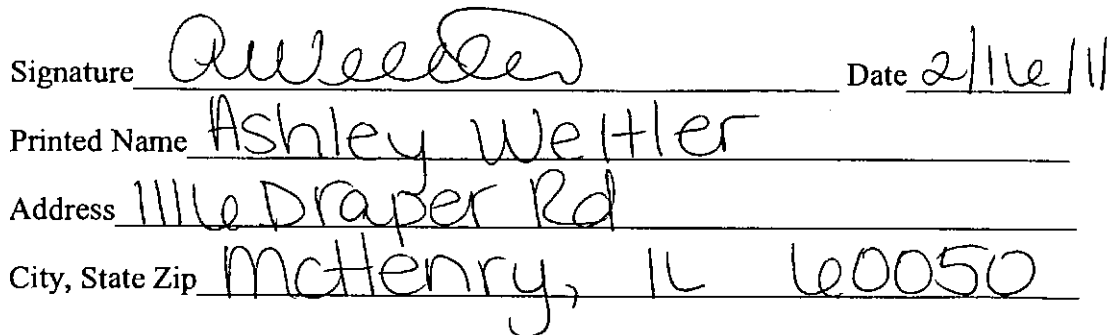 Signature Date 2/16/11
Printed Name Ashley Weltler
Address 1116 Draper Rd
City, State Zip McHenry, IL 60050